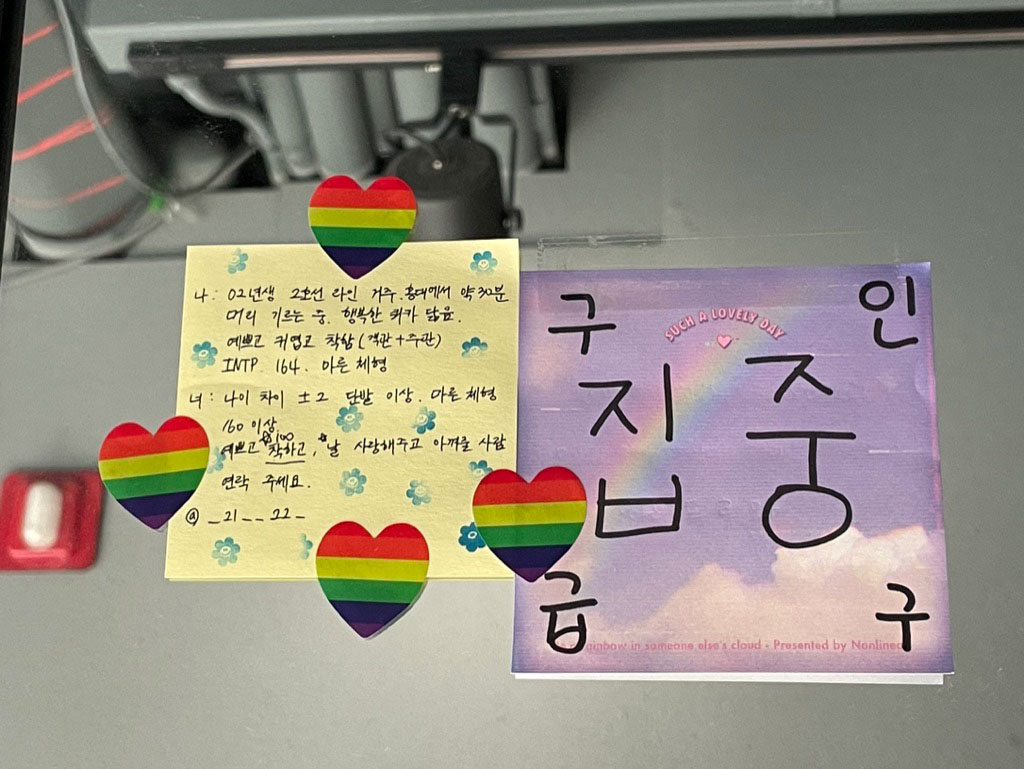 나: 02년생 2호선 라인 거주. 홍대에서 약 30분
머리 기르는 중. 행복한 쿼카 닮음.
예쁘고 커엽고 착함(객관+주관)
INTP. 164. 마른 체형
너: 나이 차이 ±2 단발 이상. 마른 체형
160 이상
☆100
예쁘고 착하고, ☆날 사랑해주고 아껴줄 사람
연락 주세요.
@ _21__22_
구 인
SUCH A LOVELY DAY
집중
급 구
rainbow in someone else's cloud - Presented by